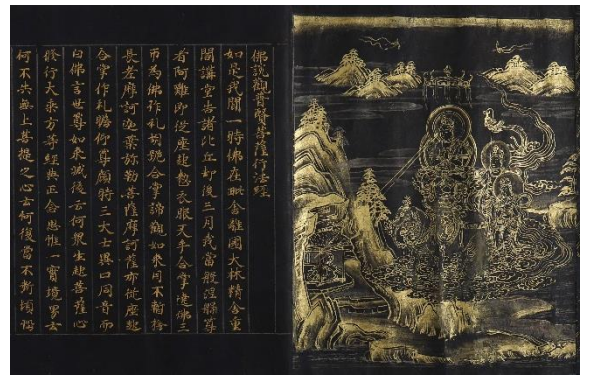 佛說觀普賢菩薩行法經
如是我聞一時佛在毗舍離國大林精舍重
閣講堂告諸比丘却後三月我當般涅槃尊
者阿難即從座起整衣服叉手合掌遶佛三
帀為佛作礼胡跪合掌諦觀如來目不暫捨
長老摩訶迦葉弥勒菩薩摩訶薩亦從座起
合掌作礼瞻仰尊顏時三大士異口同音而
白佛言世尊如來滅後云何衆生起菩薩心
修行大乘方等經典正念思惟一實境界云
何不失無上菩提之心云何復當不斷煩惱